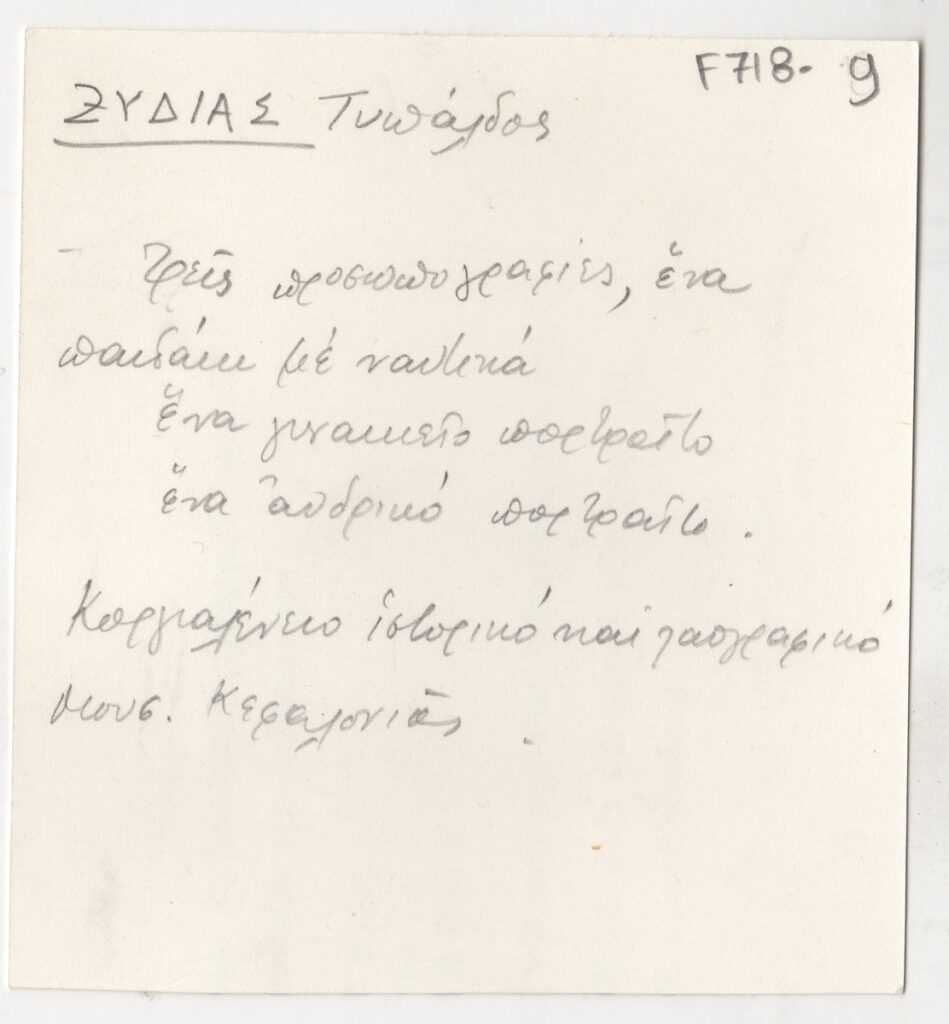 F718- 9
ΞΥΔΙΑΣ Τυπάλδος
- Τρεῖς προσωπογραφίες, ἕνα
παιδάκι μέ ναυτικά
ἕνα γυναικεῖο πορτραῖτο
ἕνα ἀνδρικό πορτραῖτο.
Κοργιαλένειο ἱστορικό καί λαογραφικό
Μουσ. Κεφαλονιᾶς.